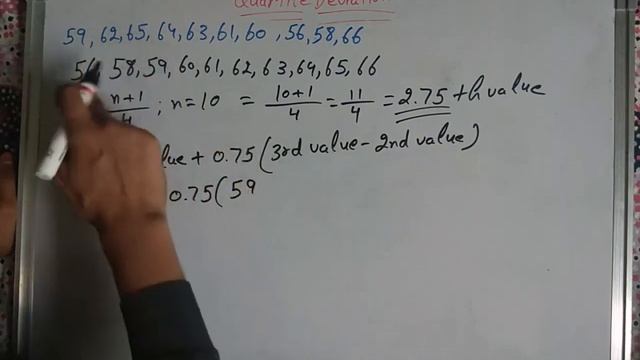 Quartile Deviation
59, 62, 65, 64, 63, 61, 60, 56, 58, 66
56, 58, 59, 60, 61, 62, 63, 64, 65, 66
n+1/4 ; n=10 = 10+1/4 = 11/4 = 2.75th value
+ 0.75(3rd value - 2nd value)
0.75(59